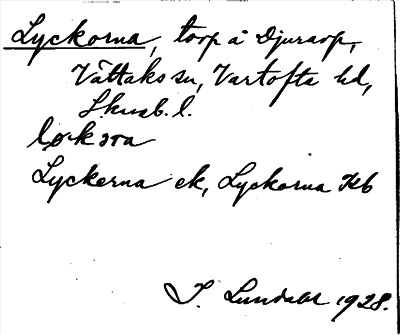 Lyckorna, torp å Djurarp,
Våttaks sn, Vartofta hd,
Skarab. l.
lɵkɔrna
Lyckerna ek, Lyckorna Kb
I. Lundahl 1928.